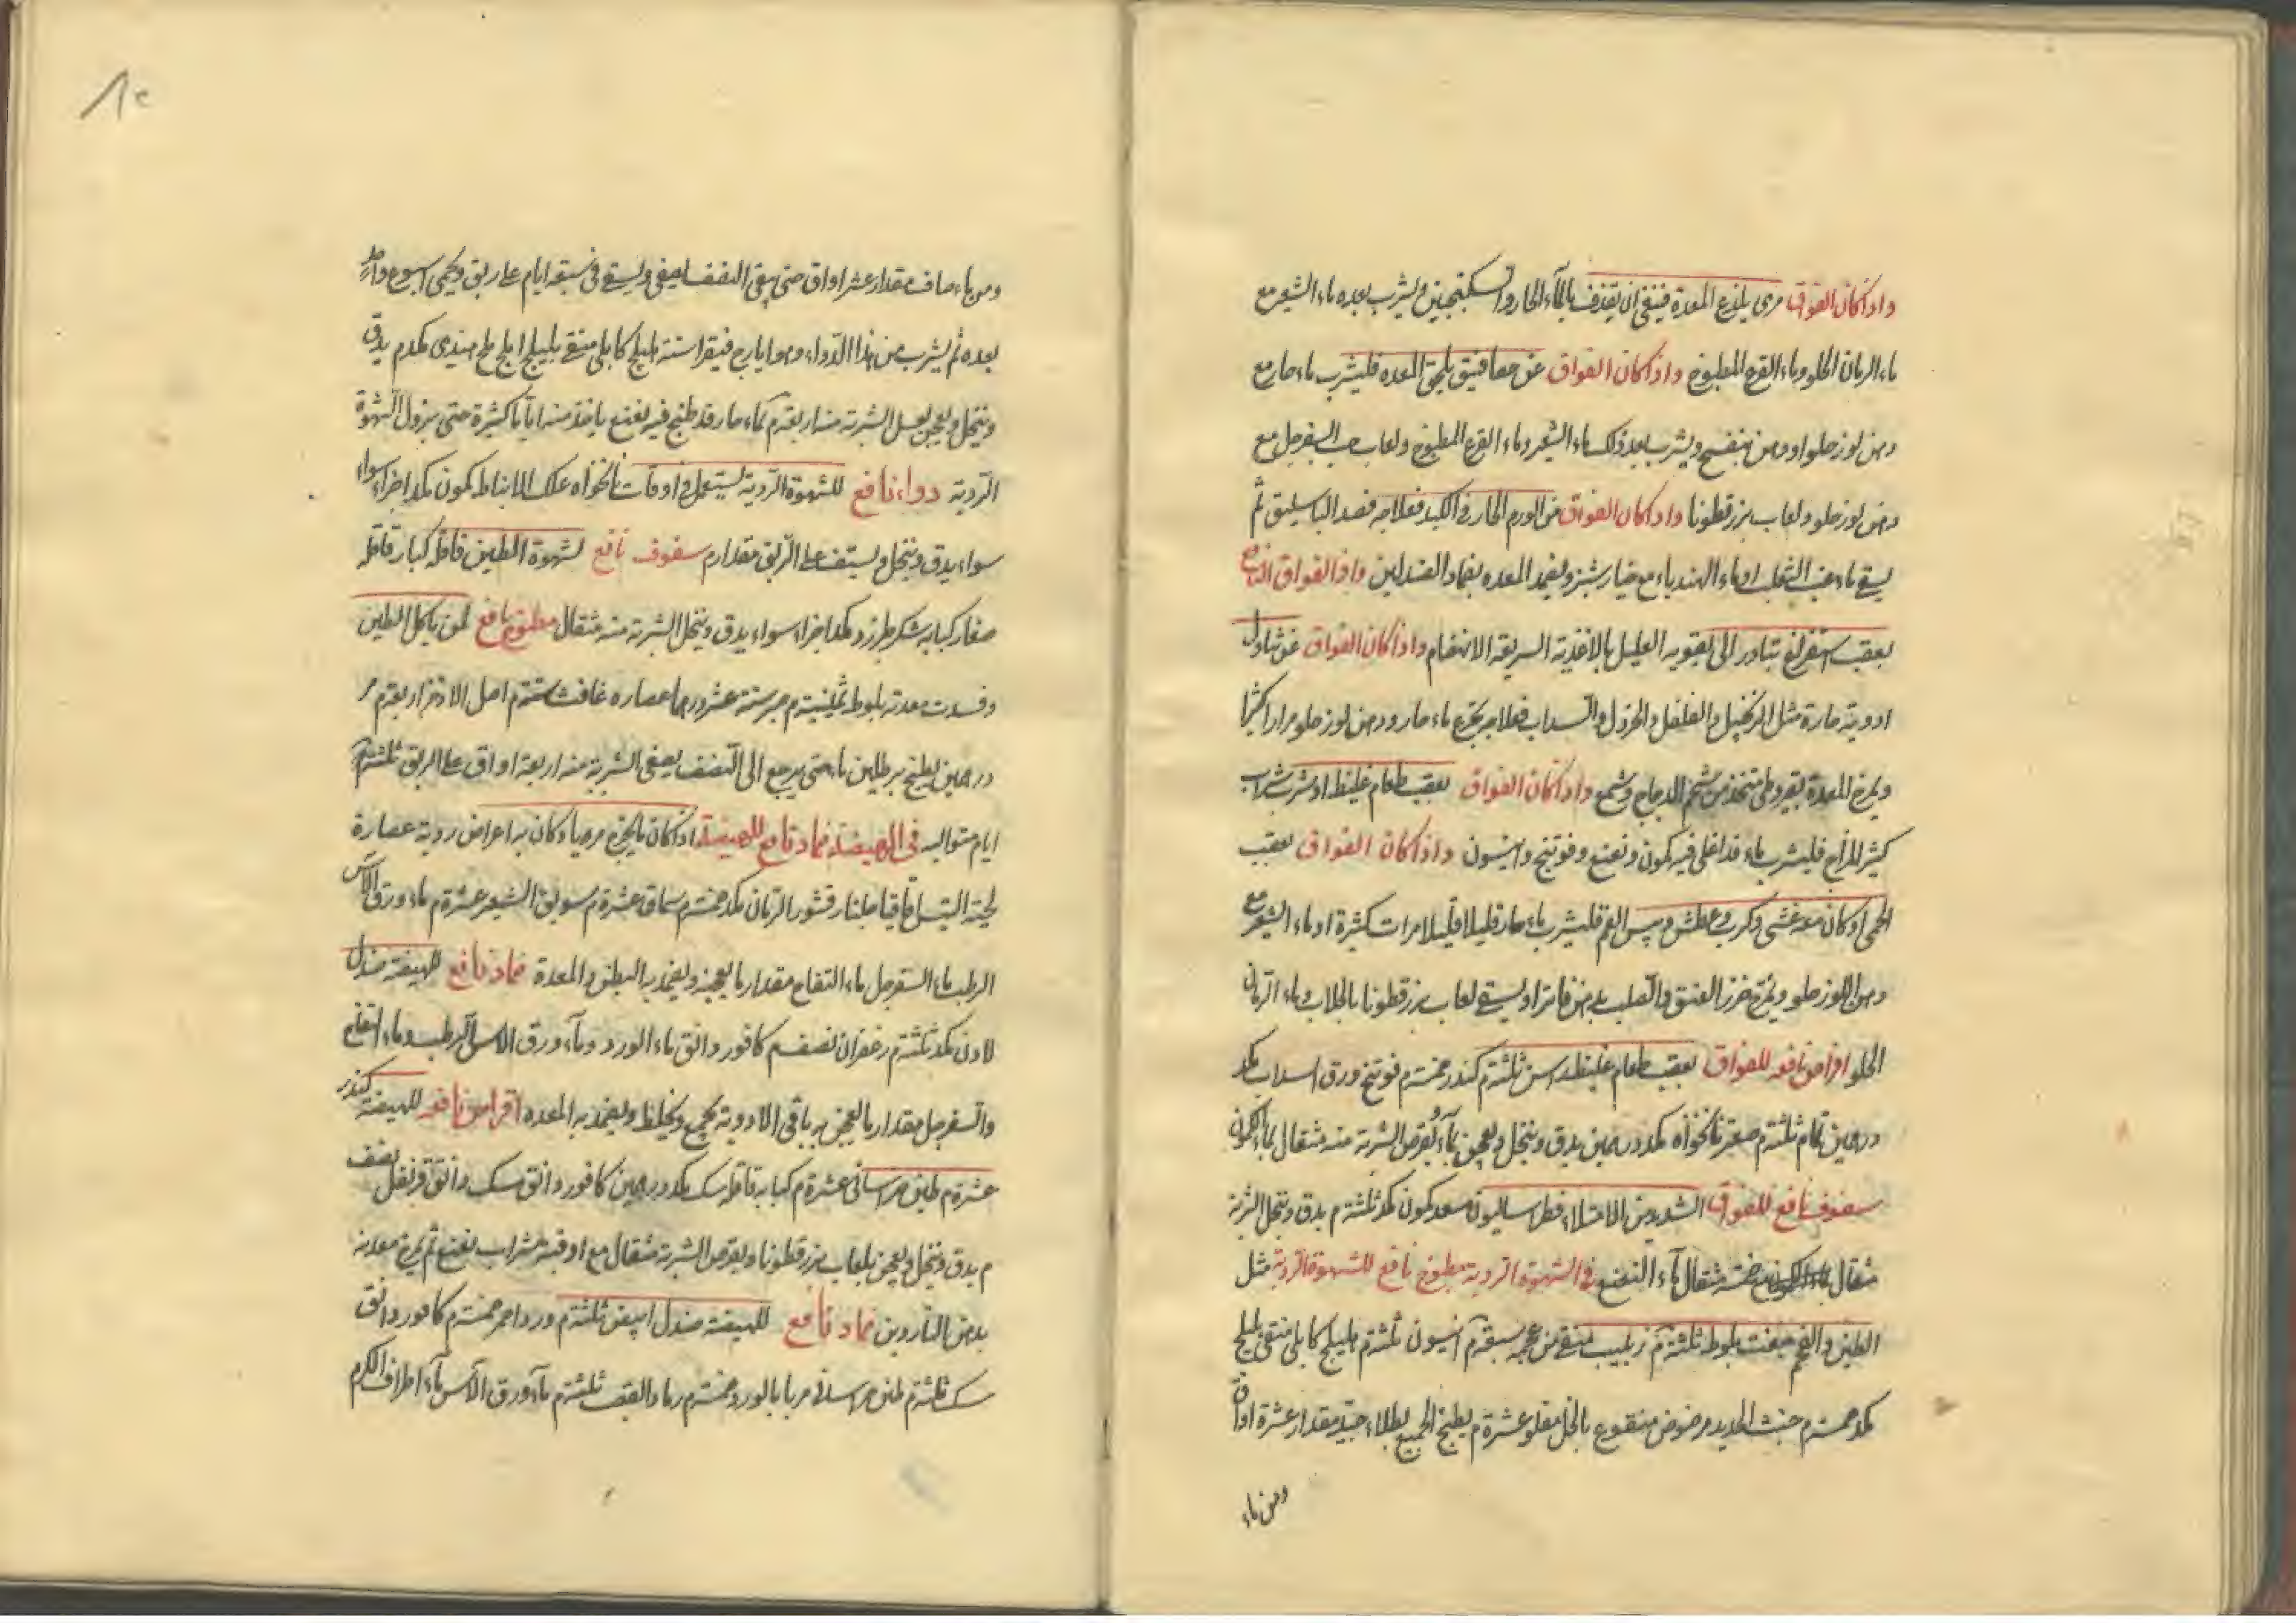 واذا كان الفواق مرى يلذع المعدة فينبغى ان يقذف بالماء الحار والسكنجبين ويشرب بعده ماء الشعير مع
ماء الرمان الحلو وماء القرع المطبوخ واذا كان الفواق عن يلحق المعده فليشرب ماء حار مع
دهن لوز حلو او دهن بنفسج ويشرب بعد ذلك ماء الشعير وماء القرع المطبوخ ولعاب حب السفرجل مع
دهن لوز حلو ولعاب بزر قطونا واذا كان الفواق من الورم الحار فى الكبد فعلاجه فصد الباسليق ثم
يسقى ماء عنب الثعلب او ماء الهندباء مع خيار شنبر ويضمد المعده بضماد الصندلين واذا الفواق الذى
بعقب استفراغ تبادر الى تقويه العليل بالاغذية السريعة الانهضام واذا كان الفواق عن تناول
ادوية حارة مثل الزنجبيل والفلفل والخردل والسداب فعلاجه يتجرع ماء حار ودهن لوز حلو مرارا كثيرا
ويمرخ المعدة بقيروطى متخذ من شحم الدجاج وشمع واذا كان الفواق بعقب طعام غليظ او شرب شراب
كثير المزاج فليشرب ماء قد اغلى فيه كمون ونعنع وفوتنج وانيسون واذا كان الفواق بعقب
الحمى او كان معه غشى وكرب وعطش ويبس الفم فليشرب ماء حار قليلا قليلا مرات كثيرة او ماء الشعير مع
دهن اللوز حلو ويمرخ خرز العنق والصلب بدهن فاترا ويسقى لعاب بزر قطونا بالجلاب وماء الرمان
الحلو اقراص نافعه للفواق بعقب طعام غليظ راسن ثلثة م كندر خمسة م فوتنج ورق السداب مكد
درهمين ثلثة م صعتر نانخواه مكد درهمين يدق وينخل ويعجن بماء يقرص الشربة منه مثقال بماء الكمون
سفوف نافع للفواق الشديد من الامتلاء فطراساليون سعد كمون مكد ثلثة م يدق وينخل الشربة
مثقال خمسة مثقال ماء النعنع فى الشهوة الردية مطبوخ نافع للشهوة الردية مثل
الطين والفحم جفت بلوط ثلثة م زبيب منقى من عجمه سبعة م انيسون ثلثة م هليلج كابلى منقى بليلج
مكد خمسة م خبث الحديد مرضوض منقوع بالخل مقلو عشرة م يطبخ الجميع بطلاء جيد مقدار عشرة اواق
ومن ماء
ومن ماء صاف مقدار عشر اواق حتى يبقى النصف يصفى ويسقى فى سبعة ايام على ريق ويحمى اسبوع واحد
بعده ثم يشرب من هذا الدواء وهو ايارج فيقرا ستة هليلج كابلى منقى بليلج املج ملح هندى مكد م يدق
وينخل ويعجن بعسل الشربة منه اربعة م بماء حار قد طبخ فيه نعنع ياخذ منه اياما كثيرة حتى يزول الشهوة
الردية دواء نافع للشهوة الردية يستعمل فى اوقات نانخواه علك الانباط كمون مكد اجزاء سواء
سواء يدق وينخل ويستف على الريق مقدار م سفوف نافع لشهوة الطين قاقله كبار قاقله
صغار كبابه سكر طبرزد مكد اجزاء سواء يدق وينخل الشربة منه مثقال مطبوخ نافع لمن ياكل الطين
وفسدت معدته بلوط ثمنية م صبر ستة عشر درهما عصاره غافث ستة م اصل الاذخر اربعة م مر
درهمين يطبخ برطلين ماء حتى يرجع الى النصف يصفى الشربة منه اربعة اواق على الريق ثلثة
ايام متواليه فى الهيضة ضماد نافع للهيضة اذا كان ما يخرج مرضيا وكان به اعراض ردية عصارة
لحية التيس اقاقيا جلنار قشور الرمان مكد خمسة م سماق عشرة م سويق الشعير عشرة م ماء ورق الاس
الرطب ماء السفرجل ماء التفاح مقدار ما يعجنه ويضمد به البطن والمعدة ضماد نافع للهيضة صندل
لادن مكد ثلثة م زعفران نصف م كافور دانق ماء الورد وماء ورق الاس الرطب وماء التفاح
والسفرجل مقدار ما يعجن به باقى الادوية يجمع ويخلط ويضمد به المعده اقراص نافعه للهيضة كندر
عشرة م طين خراسانى عشرة م كبابه قاقله سك مكد درهمين كافور دانق مسك دانق قرنفل نصف
م يدق وينخل ويعجن بلعاب بزر قطونا ويقرص الشربة مثقال مع اوقية شراب نعنع ثم يمرخ معدته
بدهن الناردين ضماد نافع للهيضة صندل ابيض ثلثة م ورد احمر خمسة م كافور دانق
سك ثلثة م طين خراسانى مربا بالورد خمسة م رماد القصب ثلثة م ماء ورق الآس ماء اطراف الكرم